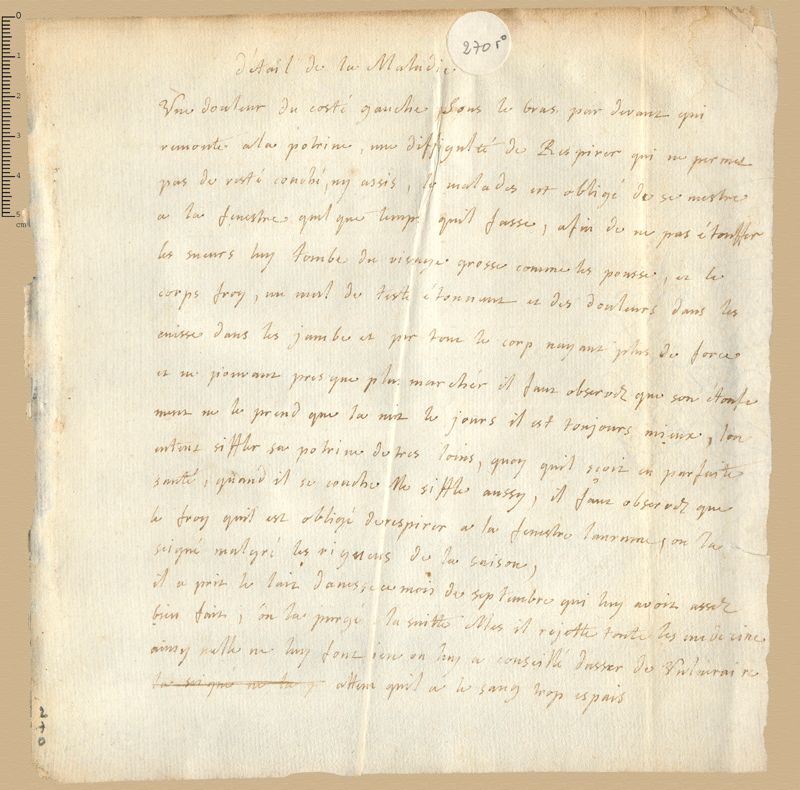 270 r°
détail de la Maladie
Une douleur du costé gauche sous le bras par devant qui
remonte a la potrine, une difigulté de Respirer qui ne permet
pas de resté couché, ny assis, le malades est obligé de se mestre
a la fenestre quel que temp quil fasse, afin de ne pas étouffer
les sueurs luy tombe du visage grosse comme les pousse, et le
corps froy, un mal de teste étonnant et des douleurs dans les
cuisse dans les jambe et par tout le corp nayant plus de force
et ne pouvant presque plus marchér il faut observéz que son étoufe
ment ne le prend que la nuit le jours il est toujours mieux, lon
entent siffler sa potrine de tres loins, quoy quil soit en parfaite
santé, quand il se couche elle siffle aussy, il faut observéz que
le froy quil est obligé de respirer a la fenestre lanrume, on la
seigné malgré les rigueurs de la saison,
il a prit le lait danesse ce mois de septembre qui luy avoit assez
bien fait, on la purgé la suitte Mes il rejette toute les medecine
ainsy quelle ne luy font rien on luy a conseillé dusser de Vulneraire
la seigne ne la attenu quil a le sang trop espais
270